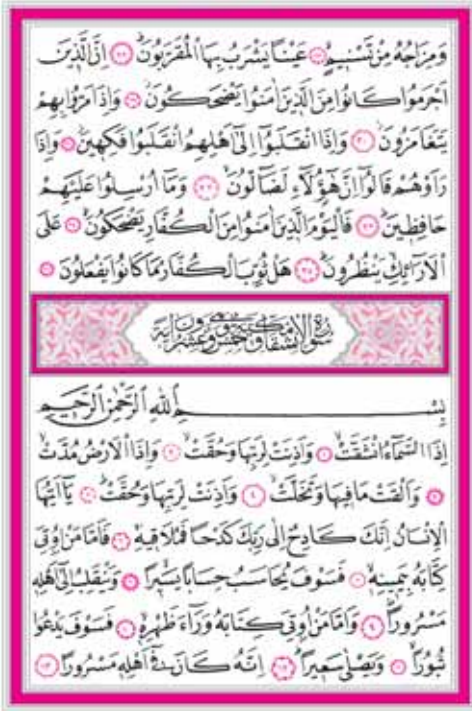 وَمِزَاجُهُ مِنْ تَسْنِيمٍۙ ﴿٢٧﴾ عَيْنًا يَشْرَبُ بِهَا الْمُقَرَّبُونَۜ ﴿٢٨﴾ اِنَّ الَّذٖينَ
اَجْرَمُوا كَانُوا مِنَ الَّذٖينَ اٰمَنُوا يَضْحَكُونَۘ ﴿٢٩﴾ وَاِذَا مَرُّوا بِهِمْ
يَتَغَامَزُونَۘ ﴿٣٠﴾ وَاِذَا انْقَلَبُٓوا اِلٰٓى اَهْلِهِمُ انْقَلَبُوا فَكِهٖينَۘ ﴿٣١﴾ وَاِذَا
رَاَوْهُمْ قَالُٓوا اِنَّ هٰٓؤُ۬لَٓاءِ لَضَٓالُّونَۙ ﴿٣٢﴾ وَمَٓا اُرْسِلُوا عَلَيْهِمْ
حَافِظٖينَۜ ﴿٣٣﴾ فَالْيَوْمَ الَّذٖينَ اٰمَنُوا مِنَ الْكُفَّارِ يَضْحَكُونَۙ ﴿٣٤﴾ عَلَى
الْاَرَٓائِكِ يَنْظُرُونَۜ ﴿٣٥﴾ هَلْ ثُوِّبَ الْكُفَّارُ مَا كَانُوا يَفْعَلُونَ ﴿٣٦﴾
سُورَةُ الْاِنْشِقَاقِ مَكِّيَّةٌ وَهِيَ خَمْسٌ وَعِشْرُونَ اٰيَةً
بِسْمِ اللّٰهِ الرَّحْمٰنِ الرَّحٖيمِ
اِذَا السَّمَٓاءُ انْشَقَّتْۙ ﴿١﴾ وَاَذِنَتْ لِرَبِّهَا وَحُقَّتْۙ ﴿٢﴾ وَاِذَا الْاَرْضُ مُدَّتْۙ
﴿٣﴾ وَاَلْقَتْ مَا فٖيهَا وَتَخَلَّتْۙ ﴿٤﴾ وَاَذِنَتْ لِرَبِّهَا وَحُقَّتْۜ ﴿٥﴾ يَٓا اَيُّهَا
الْاِنْسَانُ اِنَّكَ كَادِحٌ اِلٰى رَبِّكَ كَدْحًا فَمُلَاقٖيهِۚ ﴿٦﴾ فَاَمَّا مَنْ اُو۫تِيَ
كِتَابَهُ بِيَمٖينِهٖۙ ﴿٧﴾ فَسَوْفَ يُحَاسَبُ حِسَابًا يَسٖيرًاۙ ﴿٨﴾ وَيَنْقَلِبُ اِلٰٓى اَهْلِهٖ
مَسْرُورًاۜ ﴿٩﴾ وَاَمَّا مَنْ اُو۫تِيَ كِتَابَهُ وَرَٓاءَ ظَهْرِهٖۙ ﴿١٠﴾ فَسَوْفَ يَدْعُوا
ثُبُورًاۙ ﴿١١﴾ وَيَصْلٰى سَعٖيرًاۜ ﴿١٢﴾ اِنَّهُ كَانَ فٖٓي اَهْلِهٖ مَسْرُورًاۜ ﴿١٣﴾